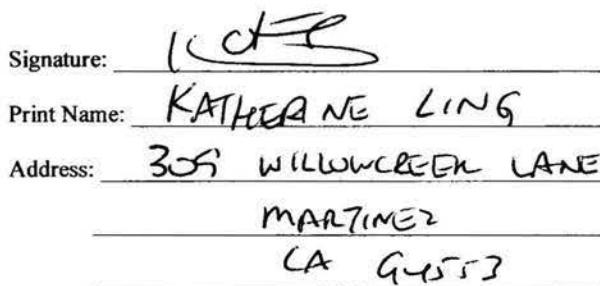 Signature:
Print Name: KATHERINE LING
Address: 305 WILLOWCREEK LANE
MARTINEZ
CA 94553